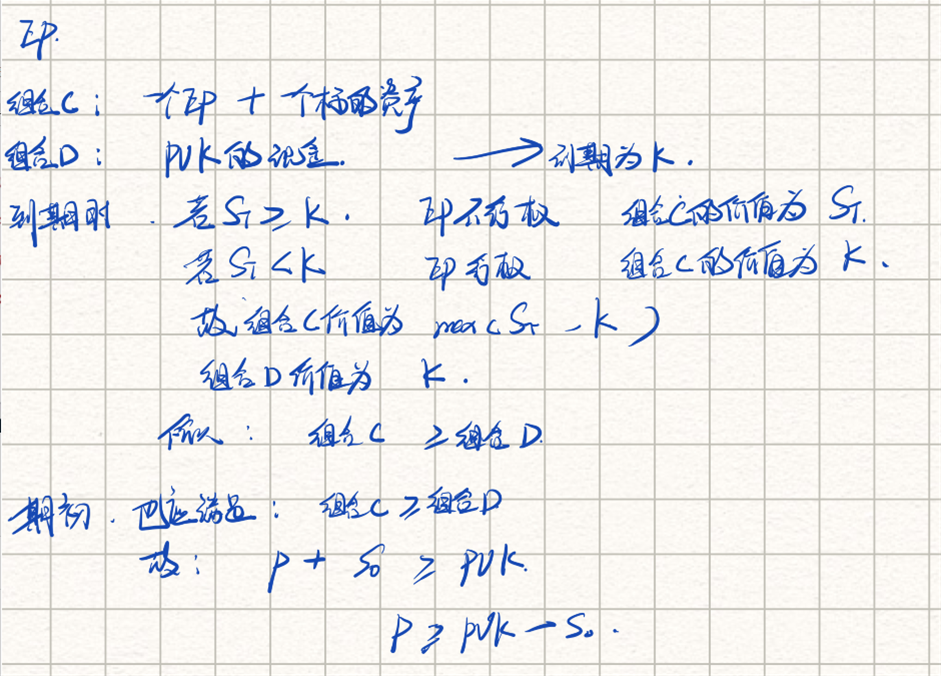 EP.
组合C： 一个EP + 一个标的资产
组合D： PVK的现金. → 到期为K.
到期时. 若 S_T ≥ K. EP不行权 组合C的价值为 S_T.
若 S_T < K EP行权 组合C的价值为 K.
故,组合C价值为 max(S_T - K)
组合D价值为 K.
所以： 组合C ≥ 组合D.
期初. 也应满足： 组合C ≥ 组合D
故： P + S_0 ≥ PVK.
P ≥ PVK - S_0.